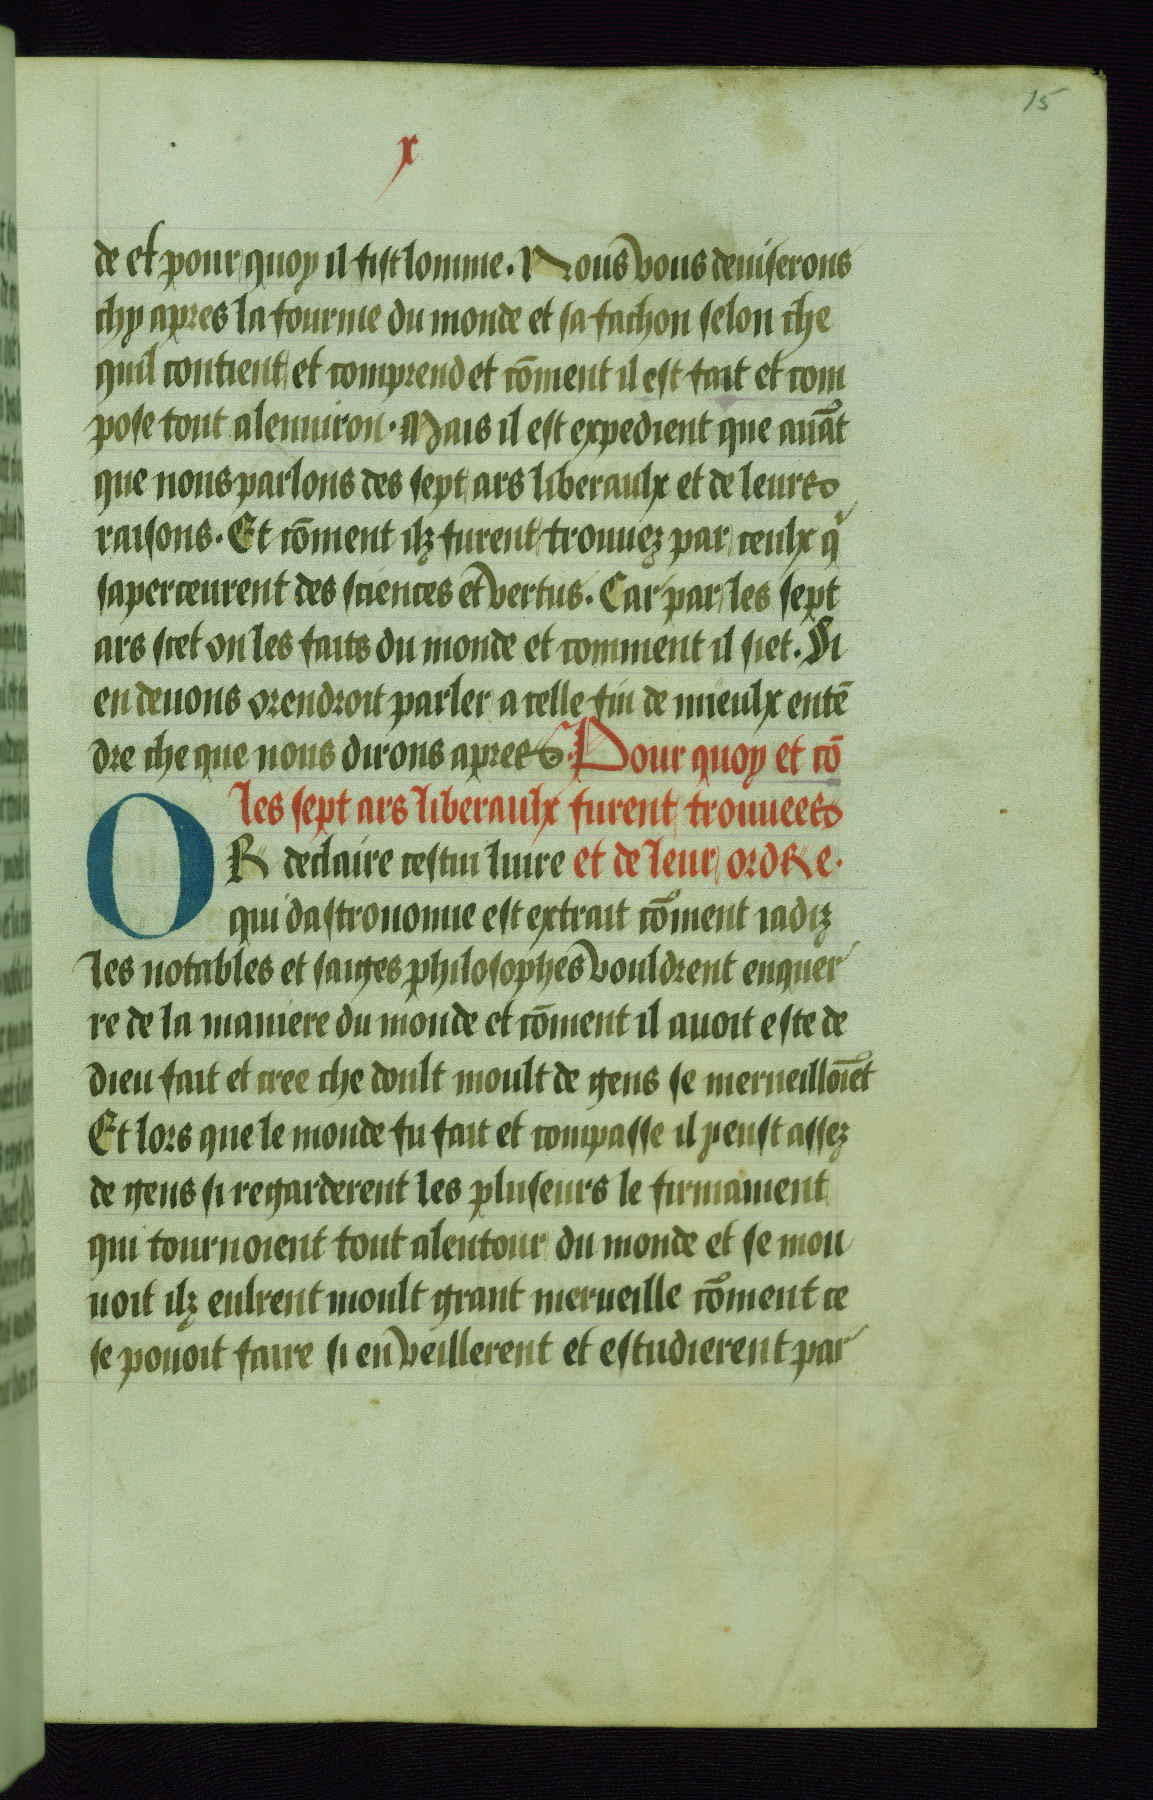 15
x
de et pour quoy il fist lomme. Nous vous deuiserons
chy apres la fourme du monde et sa fachon selon che
quil contient et comprend et cōment il est fait et com
pose tout alenuiron. Mais il est expedient que auāt
que nous parlons des sept ars liberaulx et de leurs
raisons. Et cōment ilz furent trouuez par ceulx q̄
saperceurent des sciences et vertus. Car par les sept
ars scet on les faits du monde et comment il siet. Si
en deuons orendroit parler a celle fin de mieulx entē
dre che que nous dirons apres. Pour quoy et cō
les sept ars liberaulx furent trouuees
OR declaire cestui liure et de leur ordRe.
qui dastronomie est extrait cōment iadiz
les notables et saiges philosophes vouldrent enquer
re de la maniere du monde et cōment il auoit este de
dieu fait et cree che doult moult de gens se merueilloīet
Et lors que le monde fu fait et compasse il peust assez
de gens si regarderent les pluseurs le firmament
qui tournoient tout alentour du monde et se mou
uoit ilz eulrent moult grant merueille cōment ce
se pouoit faire si en veillerent et estudierent par